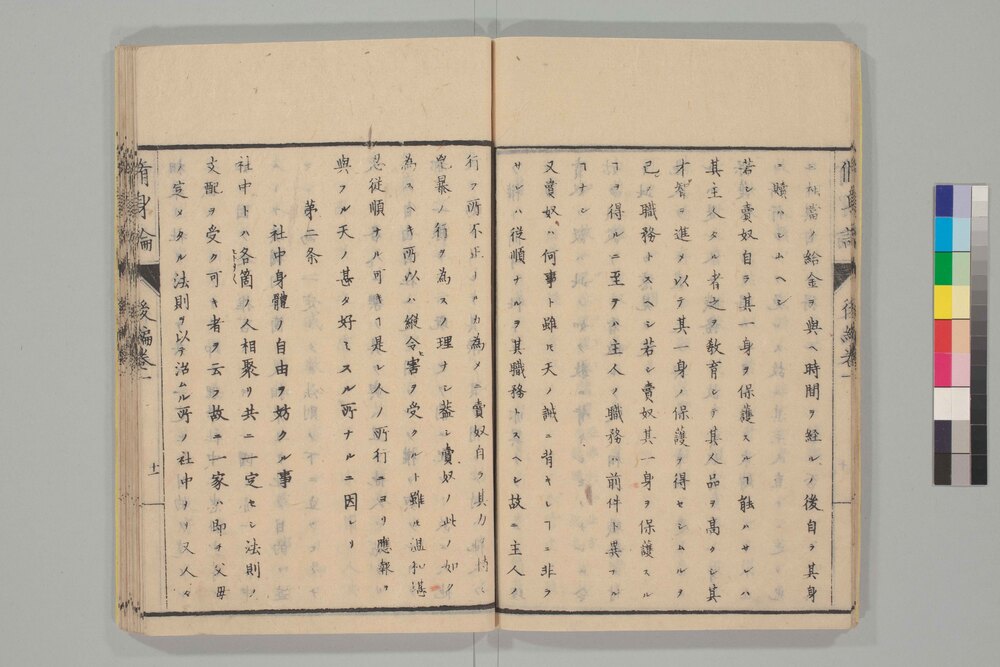 ニ相當ノ給金ヲ與ヘ時間ヲ経ルノ後自ラ其身
ヲ贖ハシムヘシ
若シ賣奴自ラ其一身ヲ保護スルヿ能ハサレハ
其主人タル者之ヲ教育シテ其人品ヲ高クシ其
才智ヲ進メ以テ其一身ノ保護ヲ得セシムルヲ
己レノ職務トスヘシ若シ賣奴其一身ヲ保護スル
ヿヲ得ルニ至ラハ主人ノ職務前件ト異ナル
ヿナシ
又賣奴ハ何事ト雖𪜈天ノ誡ニ背キシヿニ非ラ
サレハ従順ナルヲ其職務トスヘシ故ニ主人ノ
行フ所不正ナルカ為メニ賣奴自ラ其力ヲ恃ミ
兇暴ノ行ヲ為スノ理ナシ蓋シ賣奴ノ此ノ如ク
為スヘキ所以ハ縦令害ヲ受クルト雖𪜈温和堪
忍従順ナル可キヿ是レ人ノ所行ニヨリ應報ヲ
與フル天ノ甚タ好ミスル所ナルニ因レリ
第二条
社中身體ノ自由ヲ妨クル事
社中トハ各箇ノ人相聚リ共ニ一定セシ法則ノ
支配ヲ受ク可キ者ヲ云フ故ニ一家ハ即チ父母
ノ定メタル法則ヲ以テ治ムル所ノ社中ナリ又人々
脩身論
後編巻一
十一